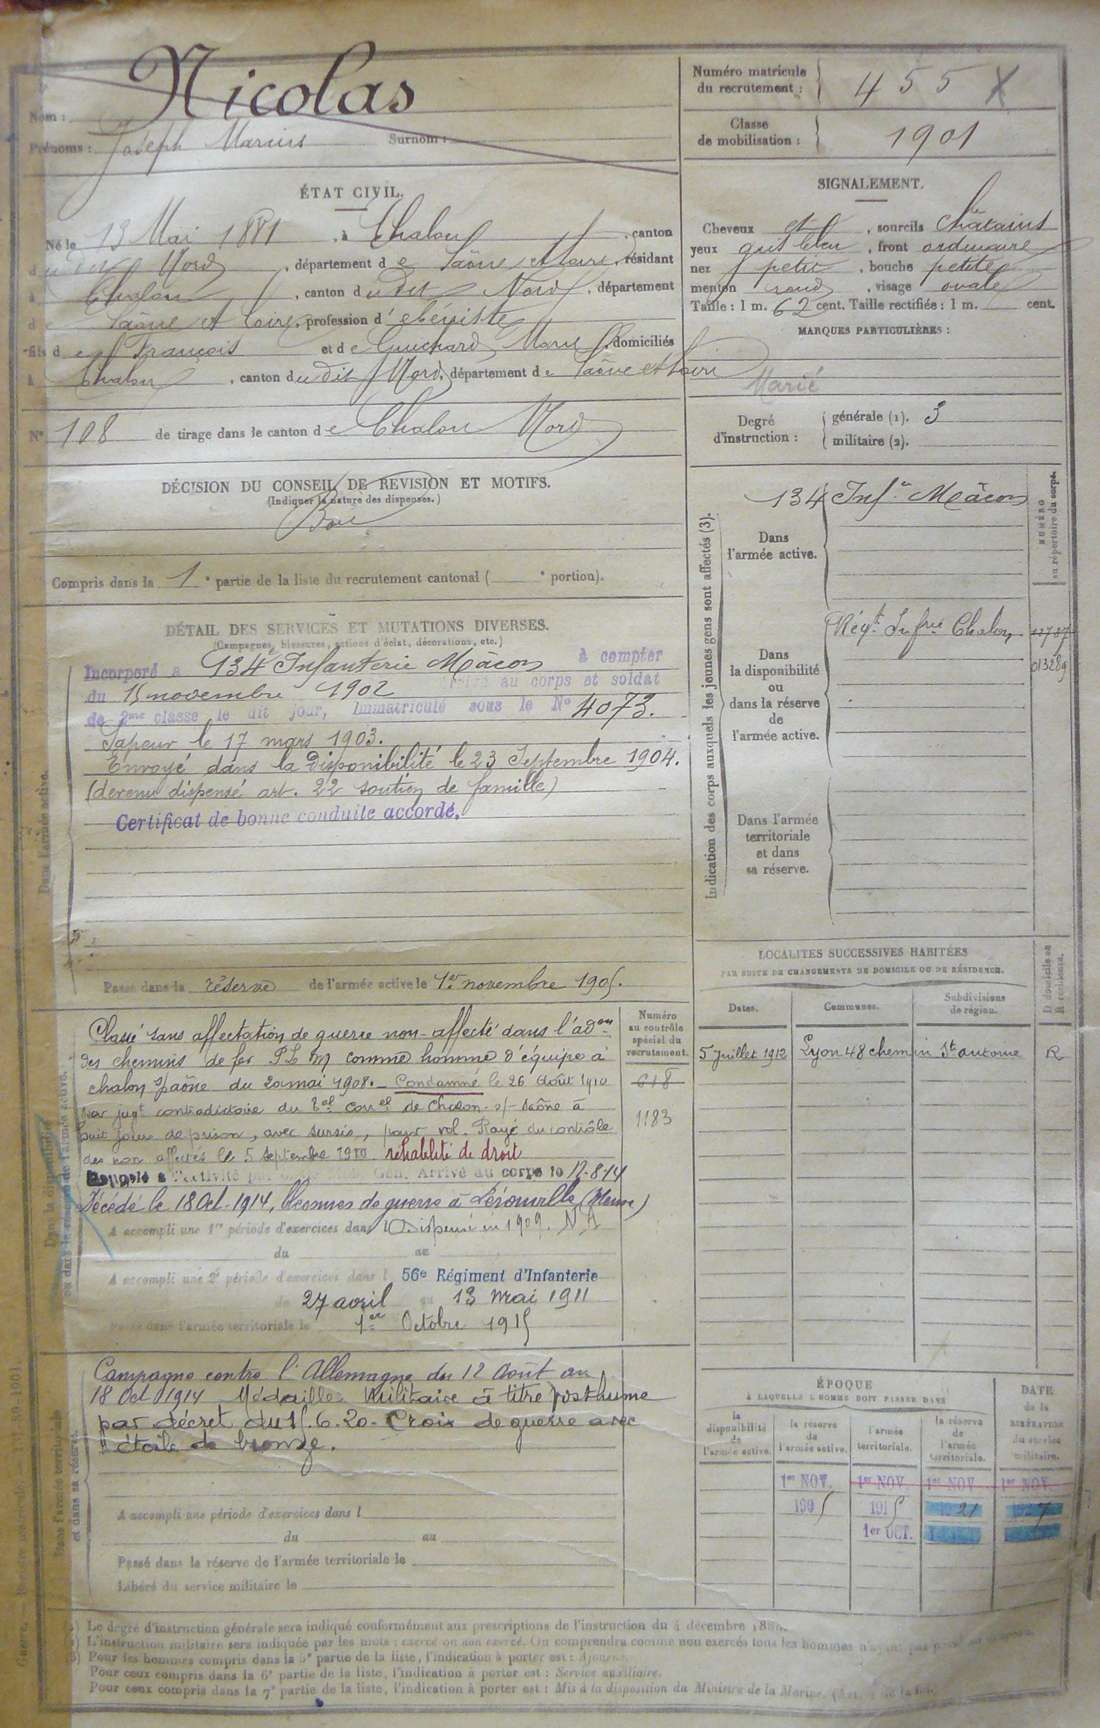 Nicolas
Nom :
Prénoms : Joseph Marius Surnom :
Numéro matricule du recrutement : 455 X
Classe de mobilisation : 1901
ÉTAT CIVIL.
Né le 13 Mai 1881, à Chalon, canton
du dit Nord, département de Saône et Loire, résidant
à Chalon, canton du dit Nord, département
de Saône et Loire, profession d'ébéniste
fils de François et de Guichard Marie, domiciliés
à Chalon, canton du dit Nord, département de Saône et Loire
N° 108 de tirage dans le canton de Chalon Nord
SIGNALEMENT.
Cheveux et, sourcils châtains
yeux gris bleu, front ordinaire
nez petit, bouche petite
menton rond, visage ovale
Taille : 1 m. 62 cent. Taille rectifiée : 1 m. cent.
MARQUES PARTICULIÈRES :
Marié
Degré d'instruction : générale (1). 3
militaire (2).
DÉCISION DU CONSEIL DE REVISION ET MOTIFS.
(Indiquer la nature des dispenses.)
Bon
Compris dans la 1e partie de la liste du recrutement cantonal ( e portion).
DÉTAIL DES SERVICES ET MUTATIONS DIVERSES.
(Campagnes, blessures, actions d'éclat, décorations, etc.)
Incorporé à 134e Infanterie Mâcon à compter
du 15 novembre 1902 au corps et soldat
de 2me classe le dit jour, Immatriculé sous le N° 4073.
Sapeur le 17 mars 1903.
Envoyé dans la Disponibilité le 23 Septembre 1904.
(devenu dispensé art. 22 soutien de famille)
Certificat de bonne conduite accordé.
Dans l'armée active.
Passé dans la réserve de l'armée active le 1er novembre 1905.
Indication des corps auxquels les jeunes gens sont affectés (3).
Dans l'armée active.
134 Infie Mâcon
NUMÉRO au répertoire du corps.
Dans la disponibilité ou dans la réserve de l'armée active.
Régt Infrie Chalon
013289
Dans l'armée territoriale et dans sa réserve.
Numéro au contrôle spécial du recrutement.
618
1183
Classé sans affectation de guerre non-affecté dans l'adon
des chemins de fer PLM comme homme d'équipe à
Chalon s/Saône du 20 mai 1908. Condamné le 26 Août 1910
par jugt contradictoire du Bal correl de Chalon-s/-Saône à
huit jours de prison, avec sursis, pour vol. Rayé du contrôle
des non affectés le 5 septembre 1910 réhabilité de droit
Rappelé à l'activité Gén. Arrivé au corps le 12-8-14
Décédé le 18 Oct-1914, blessures de guerre à Lérouville (Meuse)
A accompli une 1re période d'exercices dans l Dispensé en 1909. N A
du au
A accompli une 2e période d'exercices dans l 56e Régiment d'Infanterie
de 27 avril au 13 mai 1911
Passé dans l'armée territoriale le 1er Octobre 1915
Campagne contre l'Allemagne du 12 Août au
18 Oct 1914 Médaille Militaire à titre posthume
par décret du 15.6.20 - Croix de guerre avec
étoile de bronze.
A accompli une période d'exercices dans l
du au
Passé dans la réserve de l'armée territoriale le
Libéré du service militaire le
LOCALITÉS SUCCESSIVES HABITÉES
PAR SUITE DE CHANGEMENTS DE DOMICILE OU DE RÉSIDENCE.
Dates. Communes. Subdivisions de région. D domicile ou R résidence.
5 Juillet 1912 Lyon 48 chemin St antoine R
ÉPOQUE
À LAQUELLE L'HOMME DOIT PASSER DANS
la disponibilité de l'armée active. la réserve de l'armée active. l'armée territoriale. la réserve de l'armée territoriale.
DATE de la LIBÉRATION du service militaire.
1er NOV. 1er NOV. 1er NOV. 1er NOV.
1905 1915 1921 1927
1er OCT.
(1) Le degré d'instruction générale sera indiqué conformément aux prescriptions de l'instruction du 4 décembre
(2) L'instruction militaire sera indiquée par les mots : exercé ou non exercé. On comprendra comme non exercés tous les hommes
(3) Pour les hommes compris dans la 5e partie de la liste, l'indication à porter est : Ajourné.
Pour ceux compris dans la 6e partie de la liste, l'indication à porter est : Service auxiliaire.
Pour ceux compris dans la 7e partie de la liste, l'indication à porter est : Mis à la disposition du Ministre de la Marine.